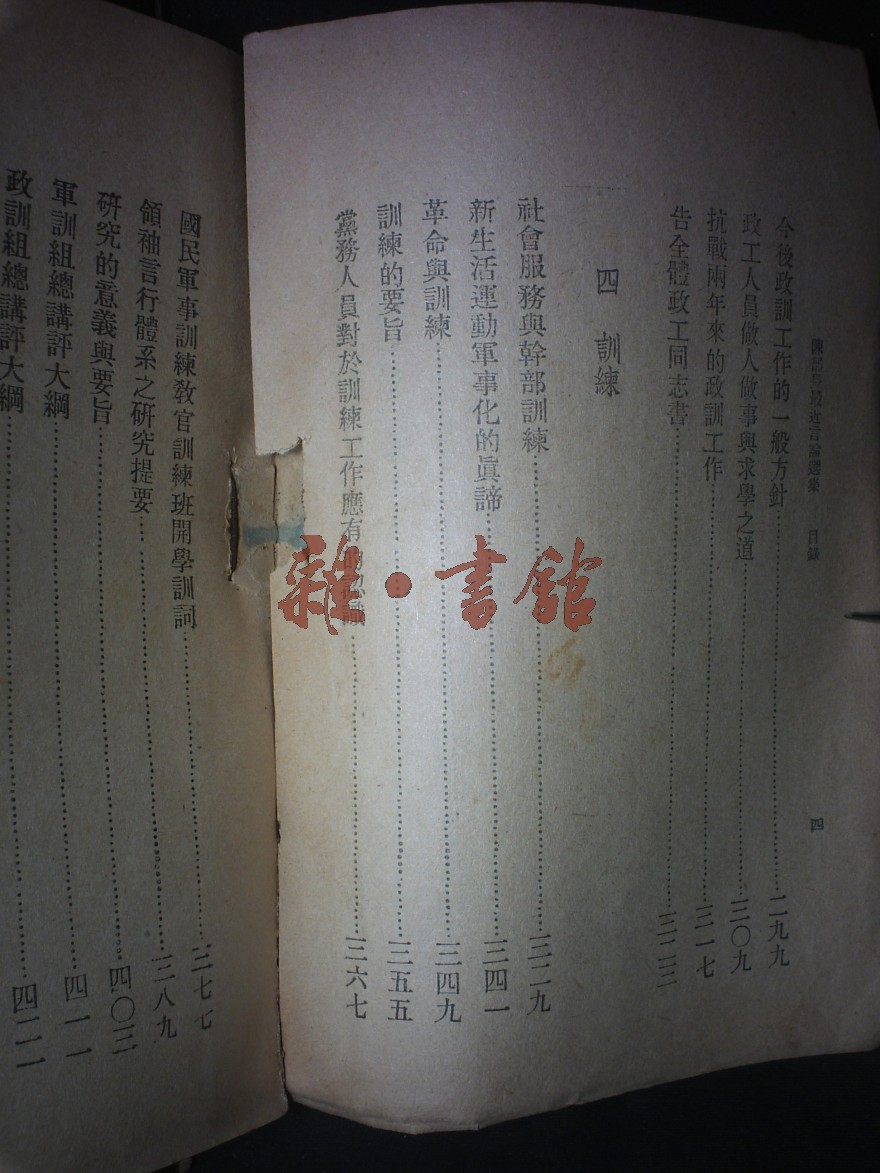 陳部長最近言論選集　目錄　四
今後政訓工作的一般方針……二九九
政工人員做人做事與求學之道……三〇九
抗戰兩年來的政訓工作……三一七
告全體政工同志書……三二三
四　訓練
社會服務與幹部訓練……三二九
新生活運動軍事化的眞諦……三四一
革命與訓練……三四九
訓練的要旨……三五五
黨務人員對於訓練工作應有的認識……三六七
國民軍事訓練敎官訓練班開學訓詞……三七七
領袖言行體系之研究提要……三八九
研究的意義與要旨……四〇三
軍訓組總講評大綱……四一一
政訓組總講評大綱……四二一
雜·書館